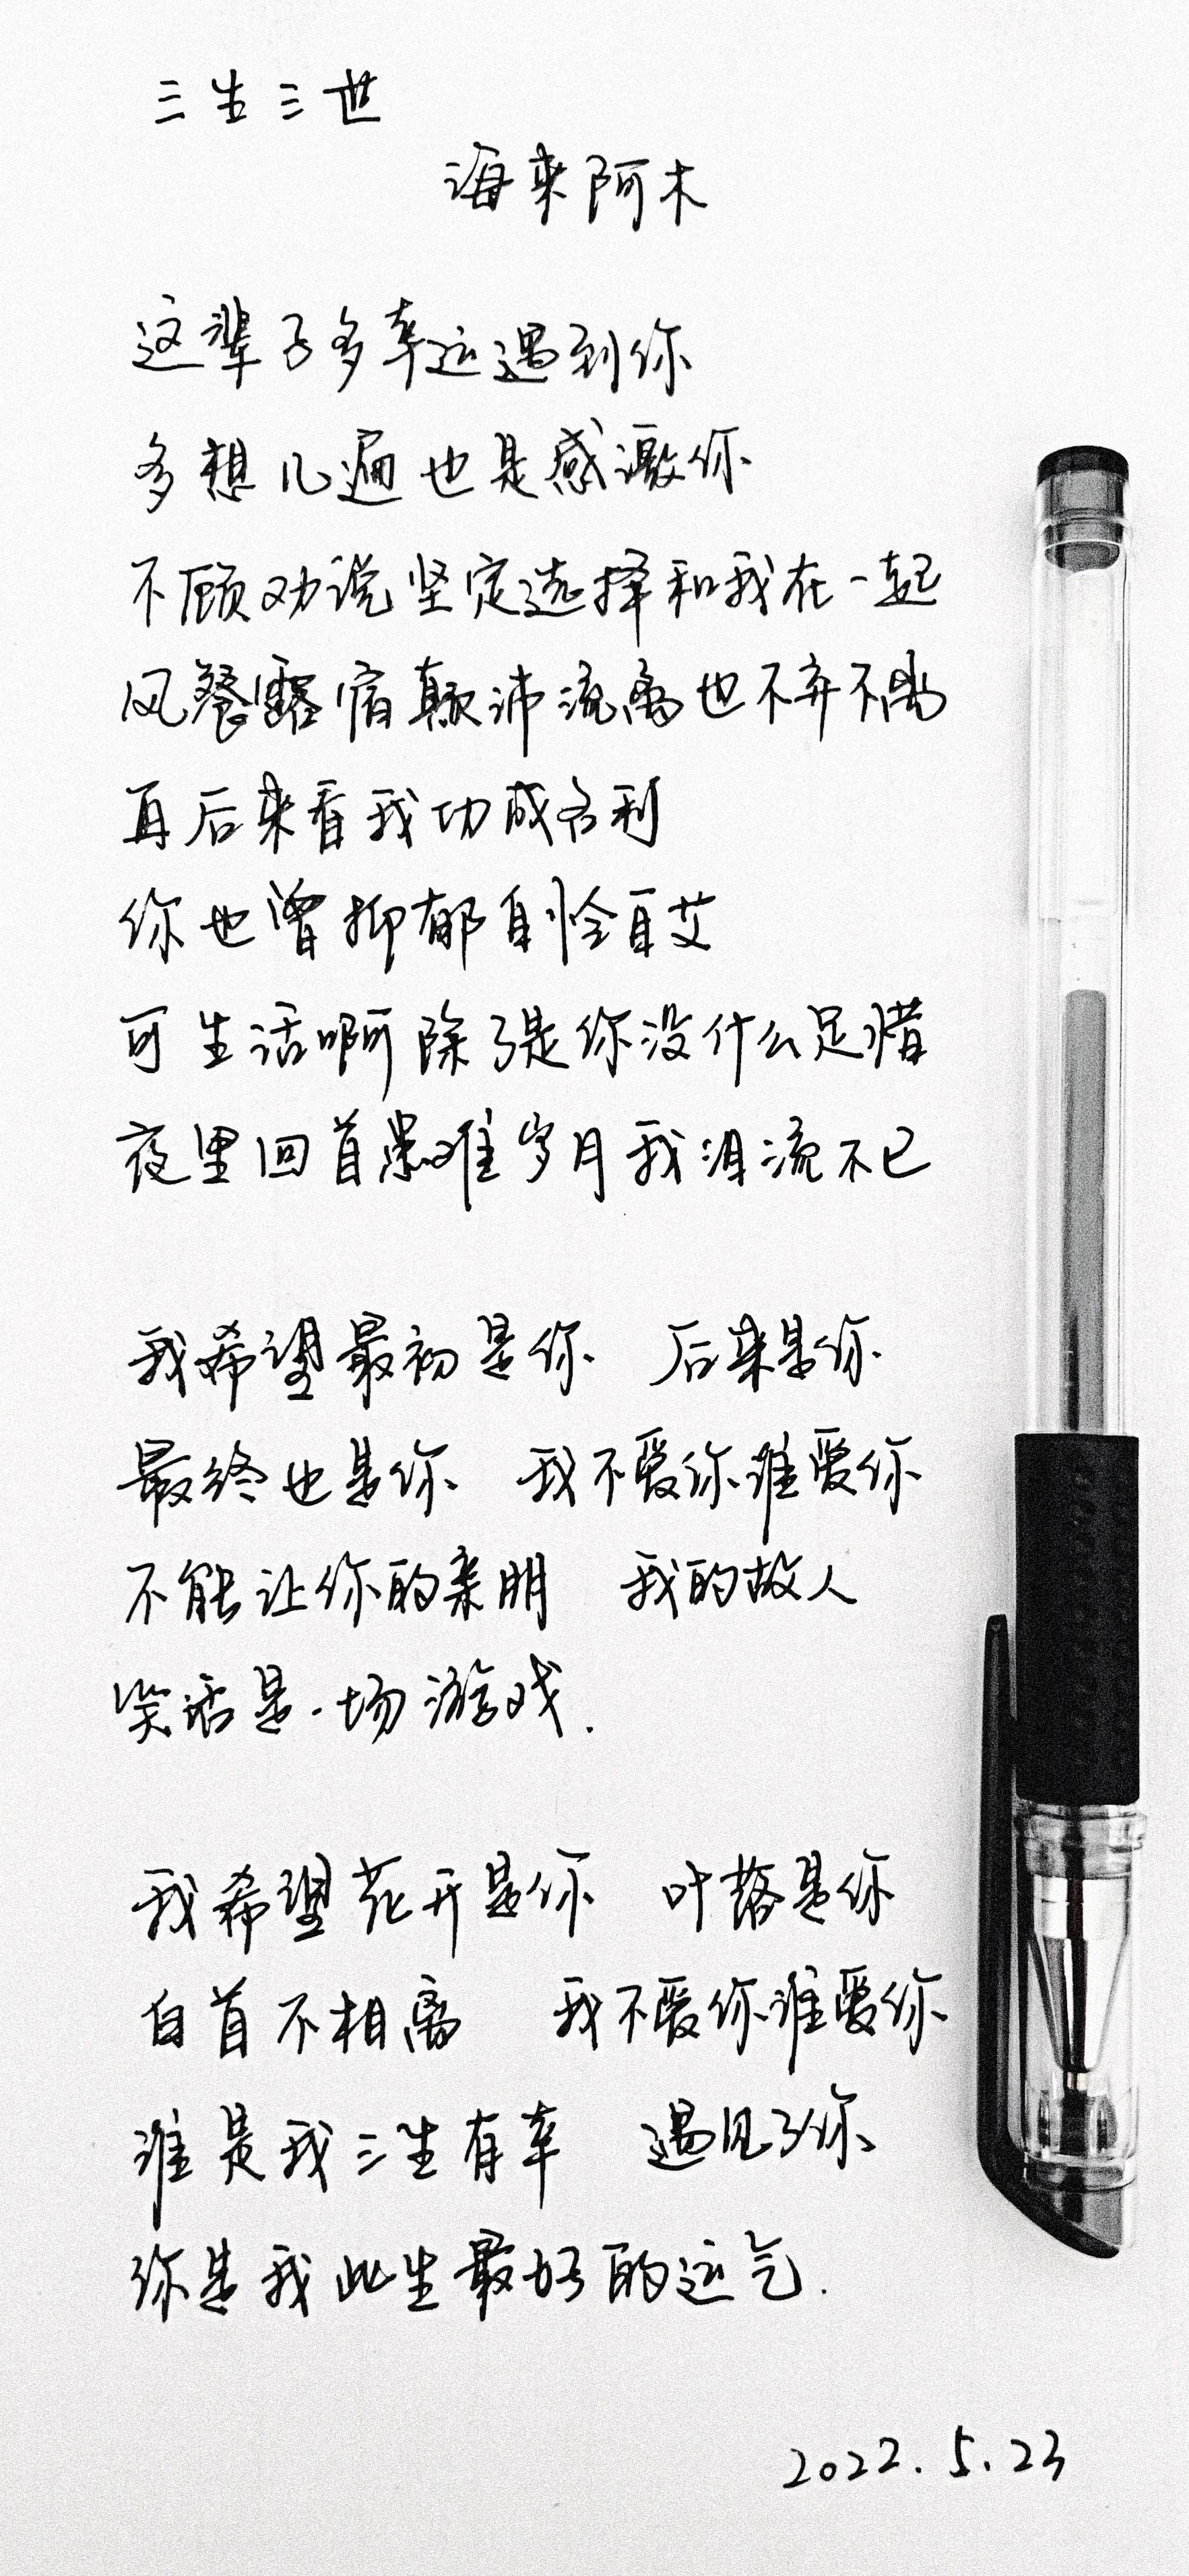 三生三世
海来阿木
这辈子多幸运遇到你
多想几遍也是感激你
不顾劝说坚定选择和我在一起
风餐露宿颠沛流离也不弃不离
再后来看我功成名利
你也曾抑郁自怜自艾
可生活啊除了是你没什么足惜
夜里回首患难岁月我泪流不已
我希望最初是你 后来是你
最终也是你 我不爱你谁爱你
不能让你的亲朋 我的故人
笑话是一场游戏.
我希望花开是你 叶落是你
白首不相离 我不爱你谁爱你
谁是我三生有幸 遇见了你
你是我此生最好的运气.
2022.5.23